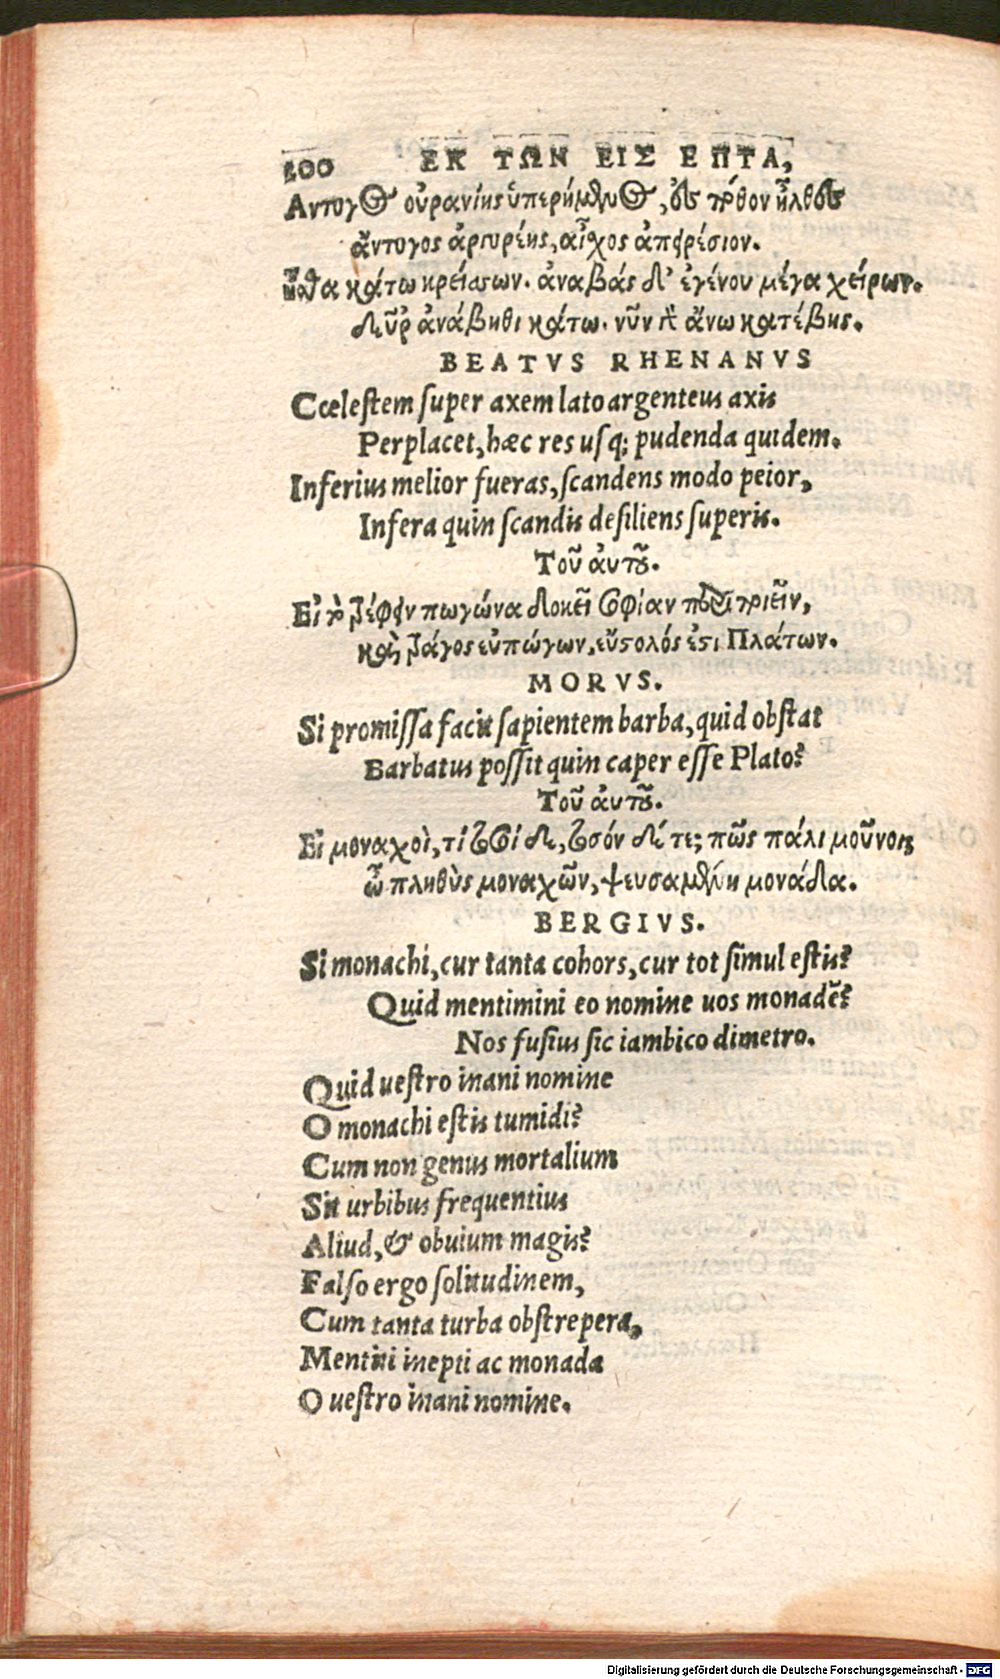 200 ΕΚ ΤΩΝ ΕΙΣ ΕΠΤΑ,
Αντυγος οὐρανίης ὑπερήμενος, ἐς πόθον ἦλθες
ἄντυγος ἀργυρέης, αἶχος ἀπειρέσιον.
ἦσθα κάτω κρείσσων. ἀναβὰς δ' ἐγένου μέγα χείρων.
δεῦρ' ἀνάβηθι κάτω. νῦν γὰρ ἄνω κατέβης.
BEATVS RHENANVS
Cœlestem super axem lato argenteus axis
Perplacet, hæc res usq; pudenda quidem.
Inferius melior fueras, scandens modo peior,
Infera quin scandis desiliens superis.
Τοῦ ἀυτοῦ.
Εἰ τὸ τρέφειν πωγώνα δοκεῖ σοφίαν περιποιεῖν,
καὶ τράγος εὐπώγων, εὔστολός ἐστι Πλάτων.
MORVS.
Si promissa facit sapientem barba, quid obstat
Barbatus possit quin caper esse Plato?
Τοῦ ἀυτοῦ.
Εἰ μοναχοὶ, τί τοσοί δε, τοσόν δέ τε; πῶς πάλι μοῦνοι;
ὦ πληθὺς μοναχῶν, ψευσαμένη μονάδα.
BERGIVS.
Si monachi, cur tanta cohors, cur tot simul estis?
Quid mentimini eo nomine uos monadẽ?
Nos fusius sic iambico dimetro.
Quid uestro inani nomine
O monachi estis tumidi?
Cum non genus mortalium
Sit urbibus frequentius
Aliud, & obuium magis?
Falso ergo solitudinem,
Cum tanta turba obstrepera,
Mentiti inepti ac monada
O uestro inani nomine.
Digitalisierung gefördert durch die Deutsche Forschungsgemeinschaft - DFG